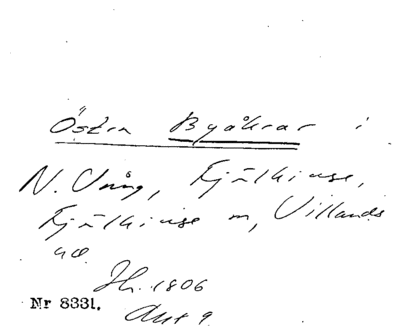 Östra Byåkrar i
N. Vång, Fjälkinge,
Fjälkinge sn, Villands
hd.
Jb. 1806
Nr 8331. Akt 9